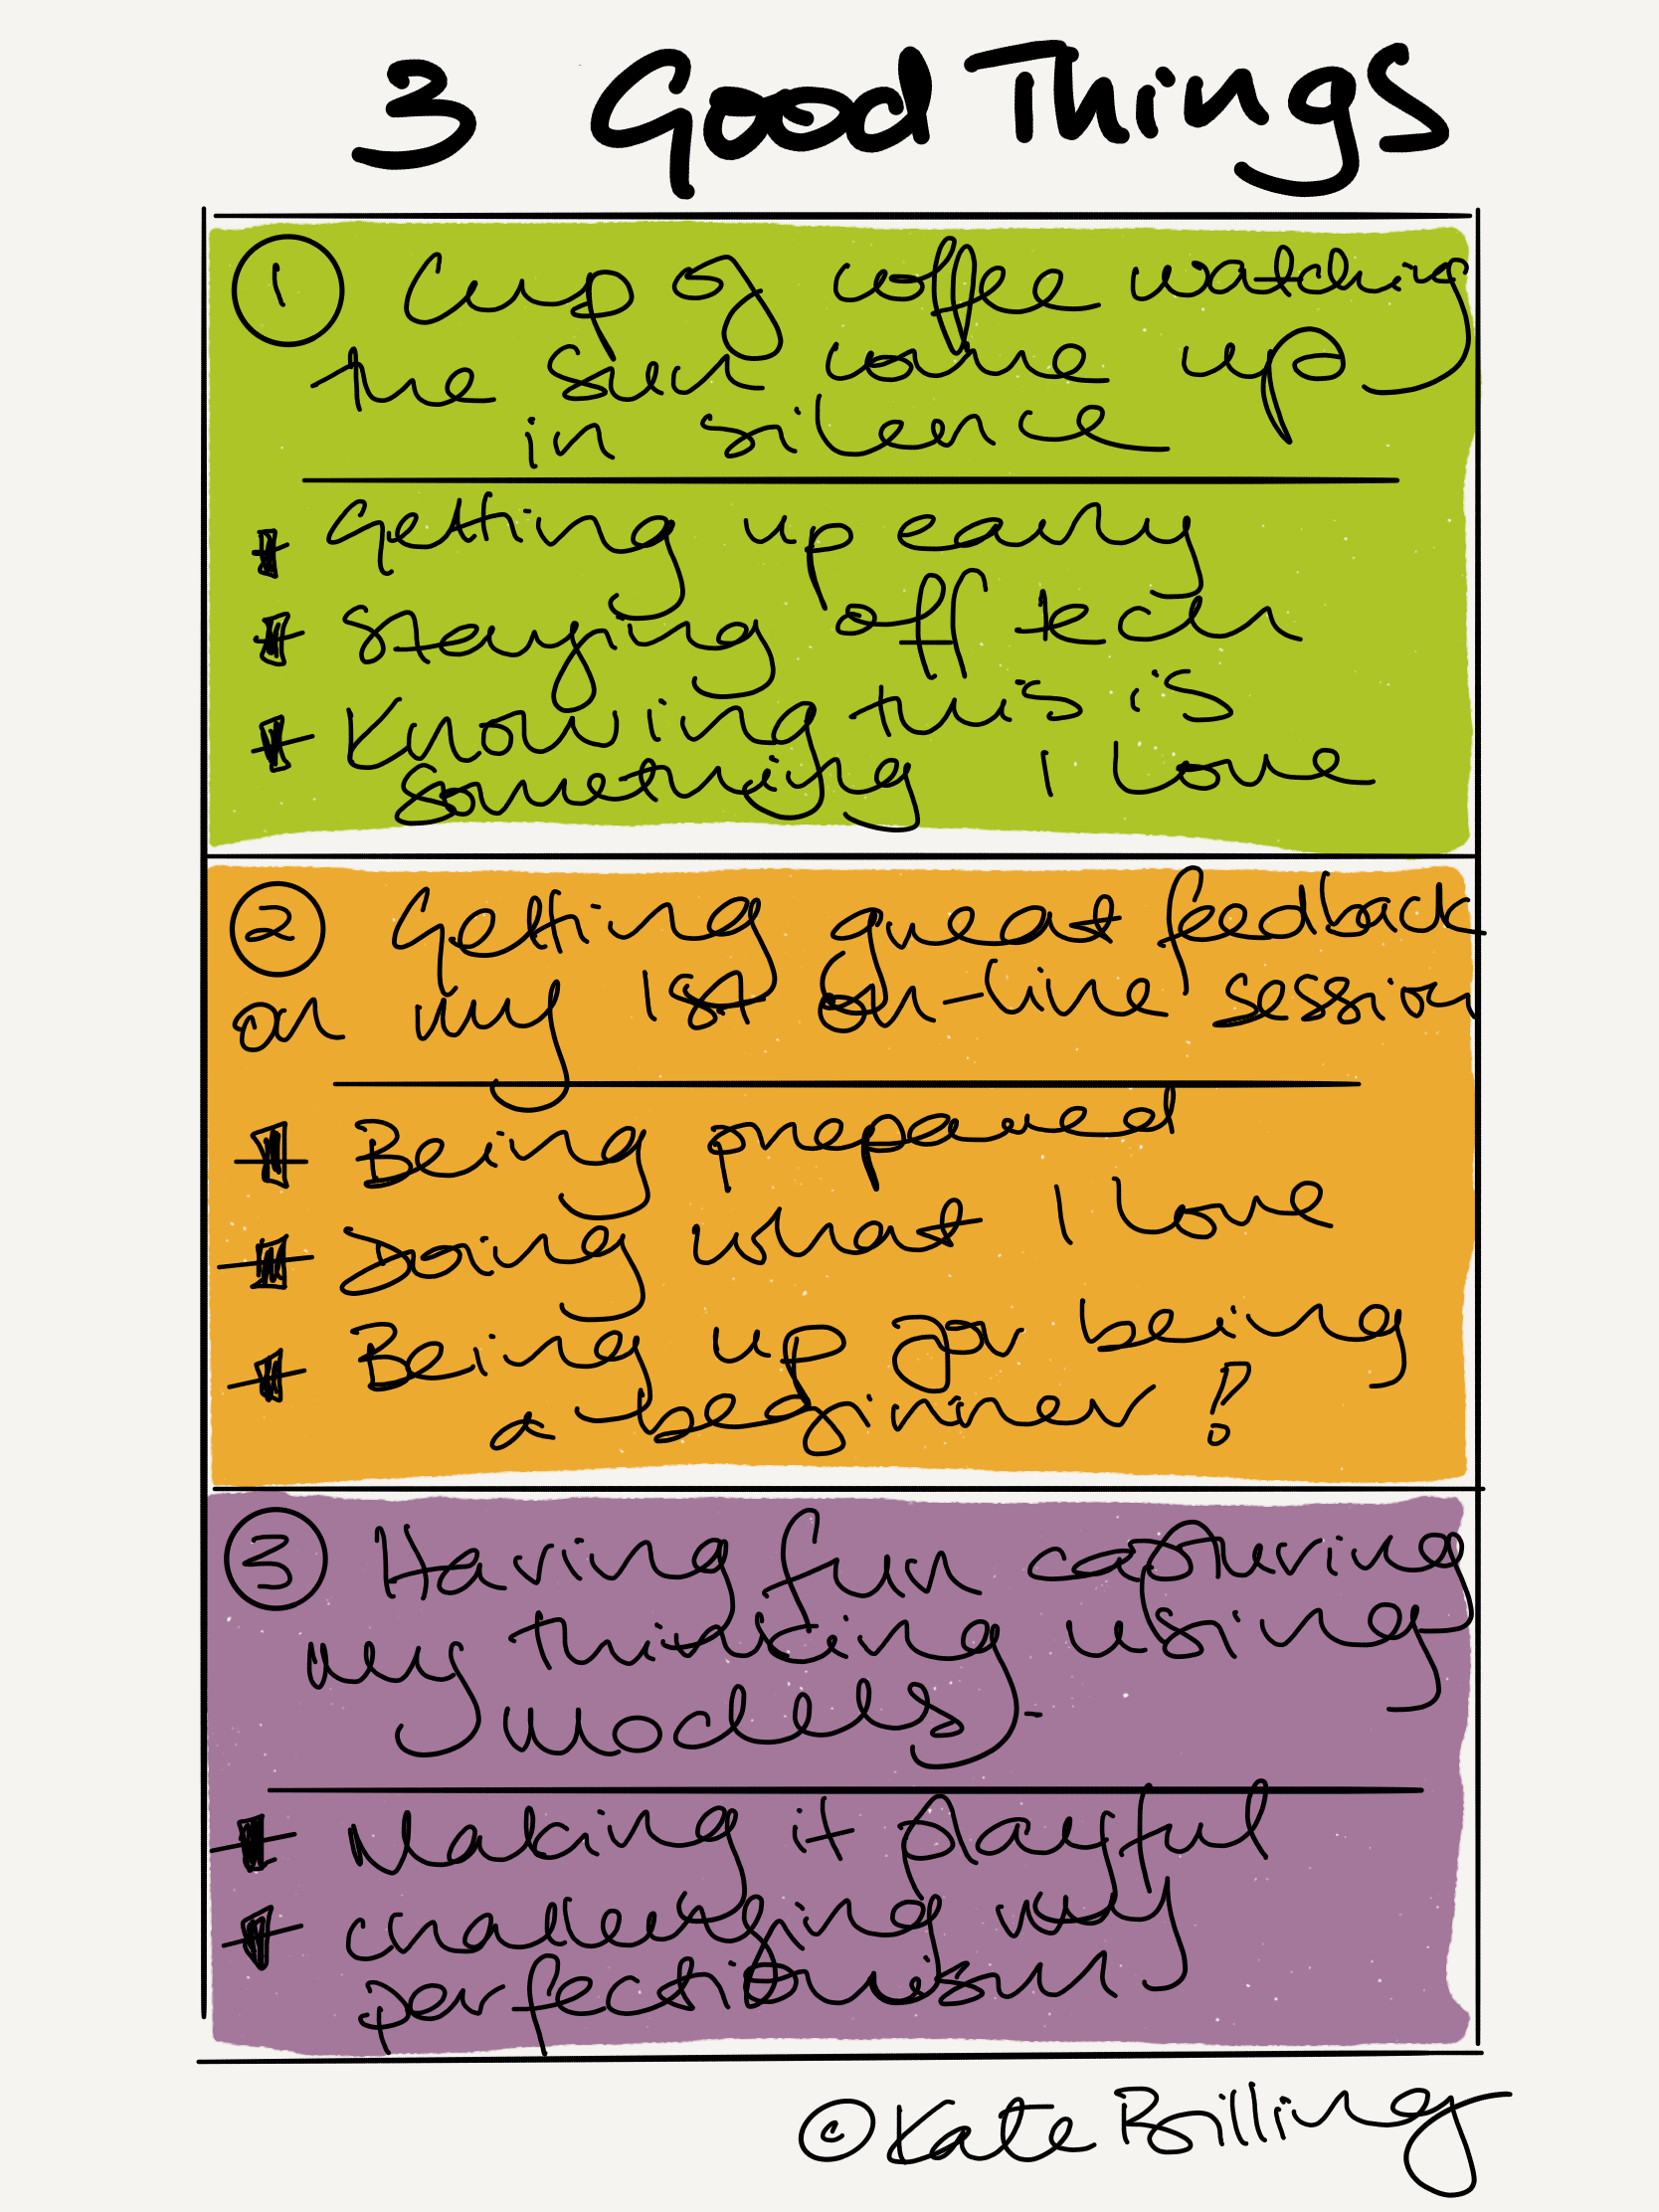 3 Good Things
1 Cup of coffee watching
the sun come up
in silence
Getting up early
Staying off tech
Knowing this is
something I love
2 Getting great feedback
on my 1st on-line session
Being prepared
Doing what I love
Being up for being
a beginner!
3 Having fun capturing
my thinking using
models.
Making it playful
challenging my
perfectionism
© Kate Billing